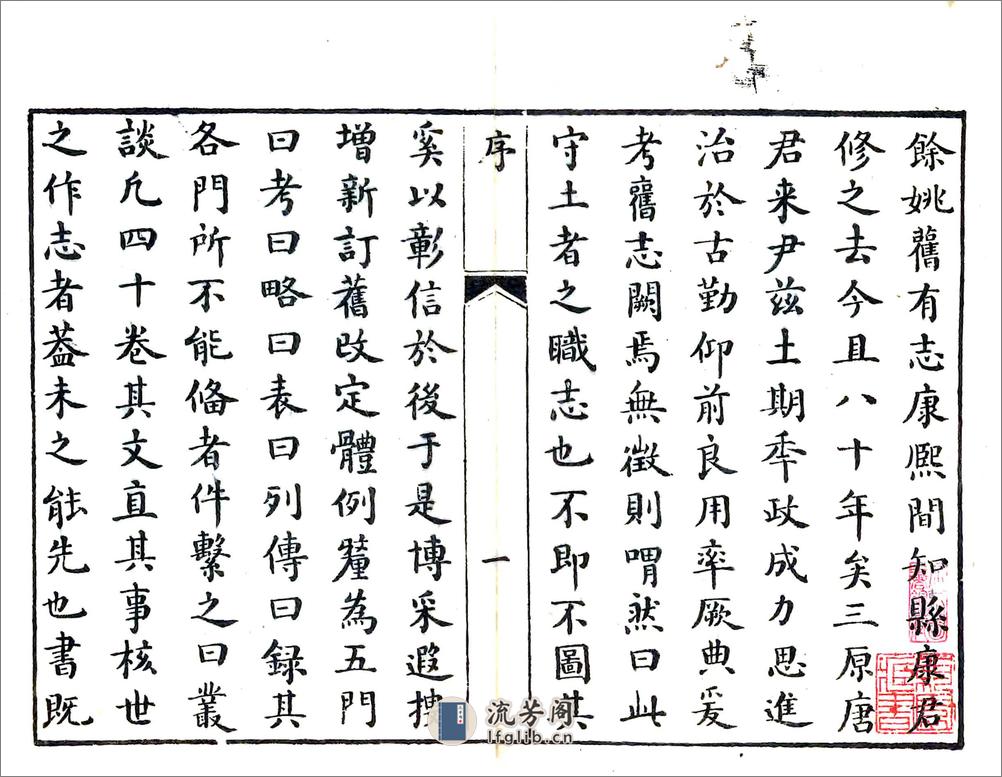 餘姚舊有志康熙間知縣康君
修之去今且八十年矣三原唐
君来尹兹土期年政成力思進
治於古勤仰前良用率厥典爰
考舊志闕焉無徵則喟然曰此
守土者之職志也不即不圖其
序
一
奚以彰信於後于是博采遐搜
增新訂舊改定體例釐為五門
曰考曰略曰表曰列傳曰録其
各門所不能備者件繫之曰叢
談凡四十卷其文直其事核世
之作志者蓋未之能先也書既
流芳阁
lfglib.cn